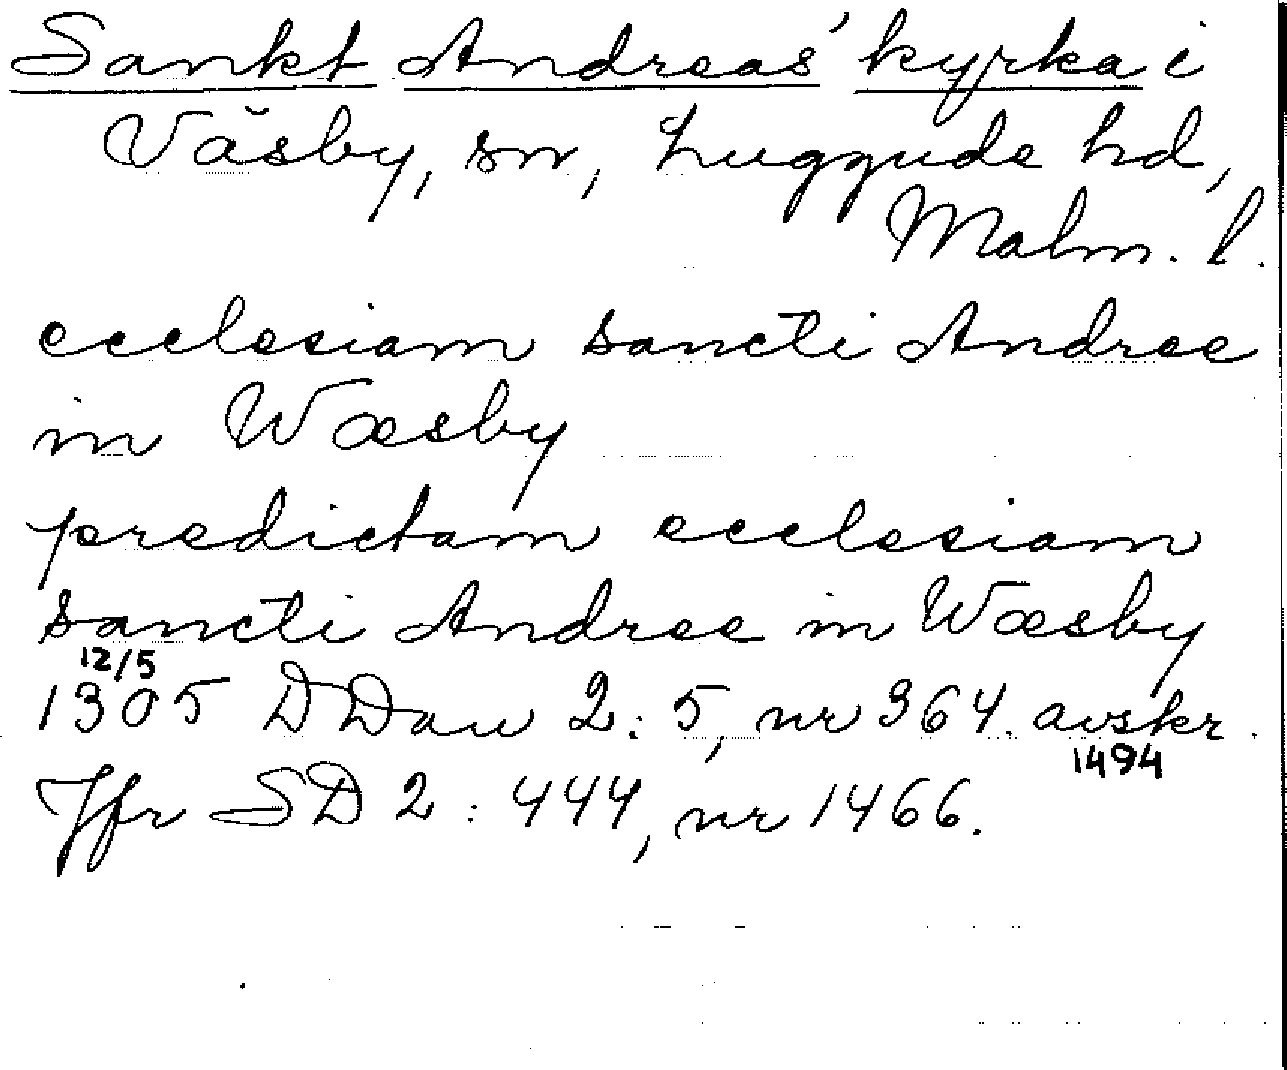 Sankt Andreas' kyrka i
Väsby, sn, Luggude hd,
Malm. l.
ecclesiam sancti Andree
in Wæsby
predictam ecclesiam
sancti Andree in Wæsby
12/5
1305 DDan 2:5, nr 364. avskr.
1494
Jfr SD 2:444, nr 1466.